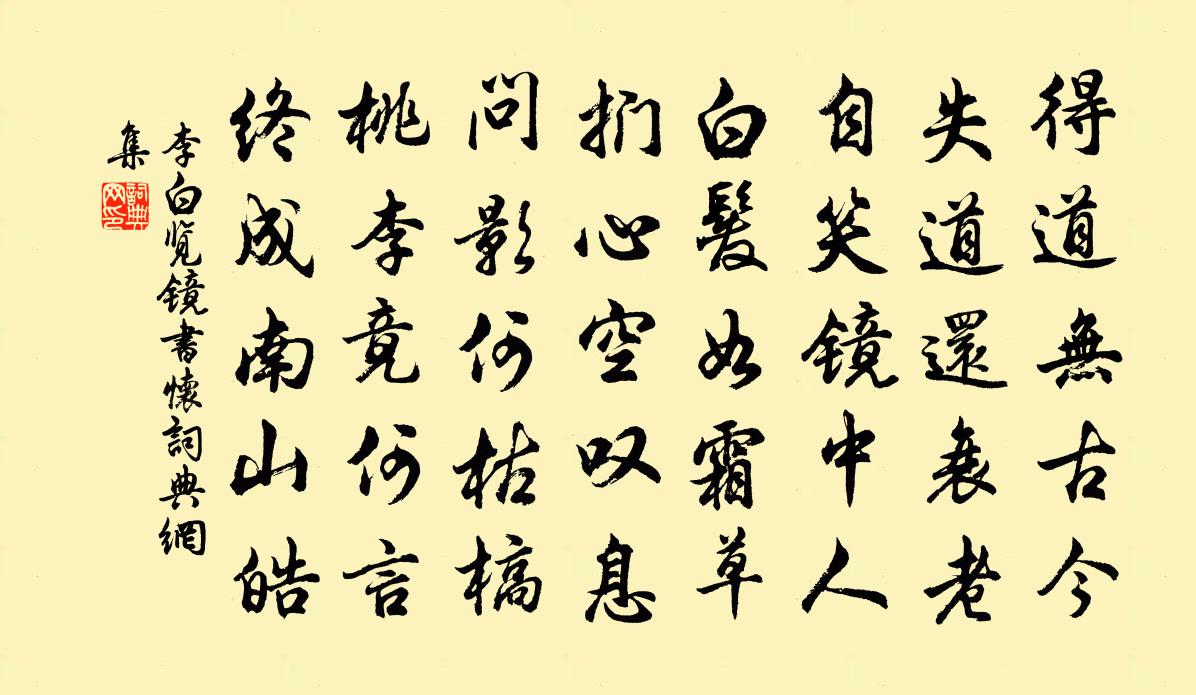 得道無古今
失道還衰老
自笑镜中人
白髮如霜草
捫心空叹息
問影何枯槁
桃李竟何言
終成南山皓
李白览镜書懷詞典網
集
詞典網印